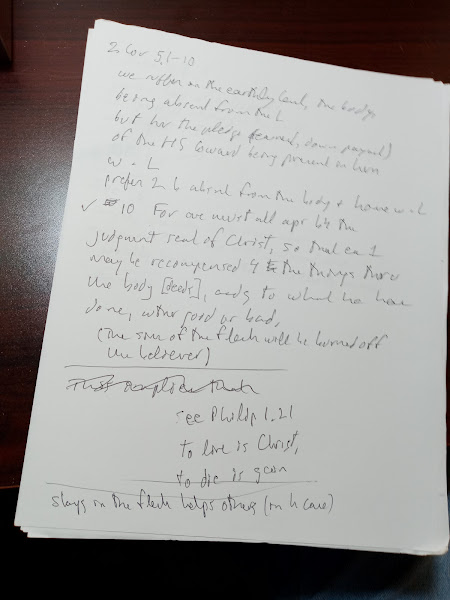 2 Cor 5.1-10
we suffer in the earthly tent, the body
being absent from the L
but hv the pledge (earnest, down paymt)
of the HS toward being present in hvn
w. L
prefer 2 b absent from the body + home w. L
✓ 10 For we must all apr b4 the
judgment seat of Christ, so that ea 1
may be recompensed 4 the things thru
the body [deeds], acdg to what he has
done, whr good or bad,
(the sins of the flesh will be burned off
the believer)
see Philip 1.21
to live is Christ,
to die is gain
stayg in the flesh helps others (in h case)